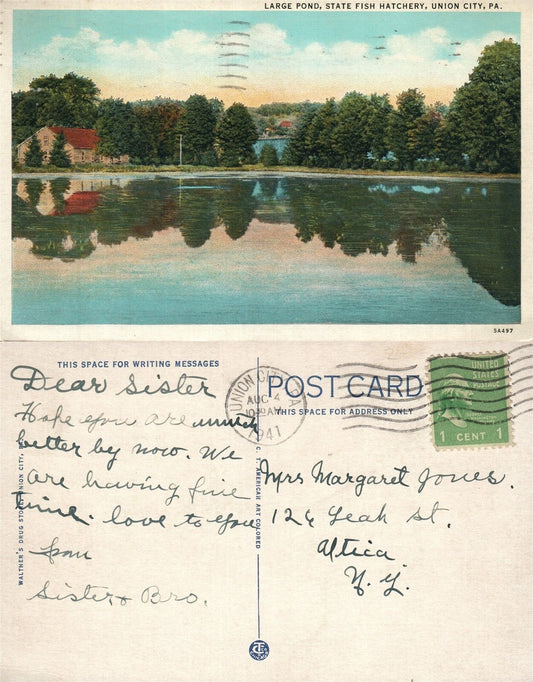 LARGE POND, STATE FISH HATCHERY, UNION CITY, PA.
5A497
THIS SPACE FOR WRITING MESSAGES
Dear Sister
Hope you are much
better by now. We
are having fine
time. love to you
from
Sister & Bro.
WALTHER'S DRUG STORE, UNION CITY,
C. T. AMERICAN ART COLORED
UNION CITY, PA.
AUG 4
10 30 AM
1941
POST CARD
THIS SPACE FOR ADDRESS ONLY
UNITED
STATES
POSTAGE
1 CENT 1
Mrs Margaret Jones.
126 Leah st.
Utica
N. Y.